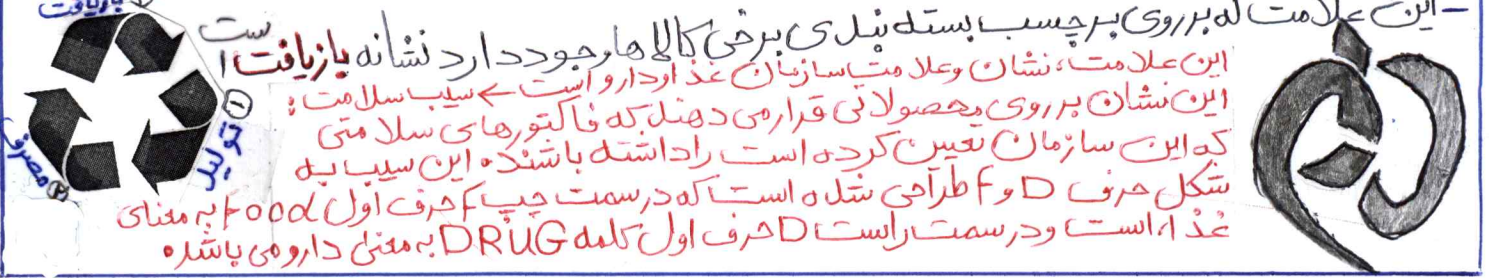 - این علامت که بر روی برچسب بسته بندی برخی کالا ها وجود دارد نشانه بازیافت است
این علامت، نشان و علامت سازمان غذا و دارو است ← سیب سلامت:
این نشان بر روی محصولاتی قرار می دهند که فاکتورهای سلامتی
که این سازمان تعیین کرده است را داشته باشند. این سیب به
شکل حرف D و F طراحی شده است که در سمت چپ F حرف اول Food به معنای
غذا است و در سمت راست D حرف اول کلمه DRUG به معنی دارو می باشد.
بازیافت
① تولید
② مصرف